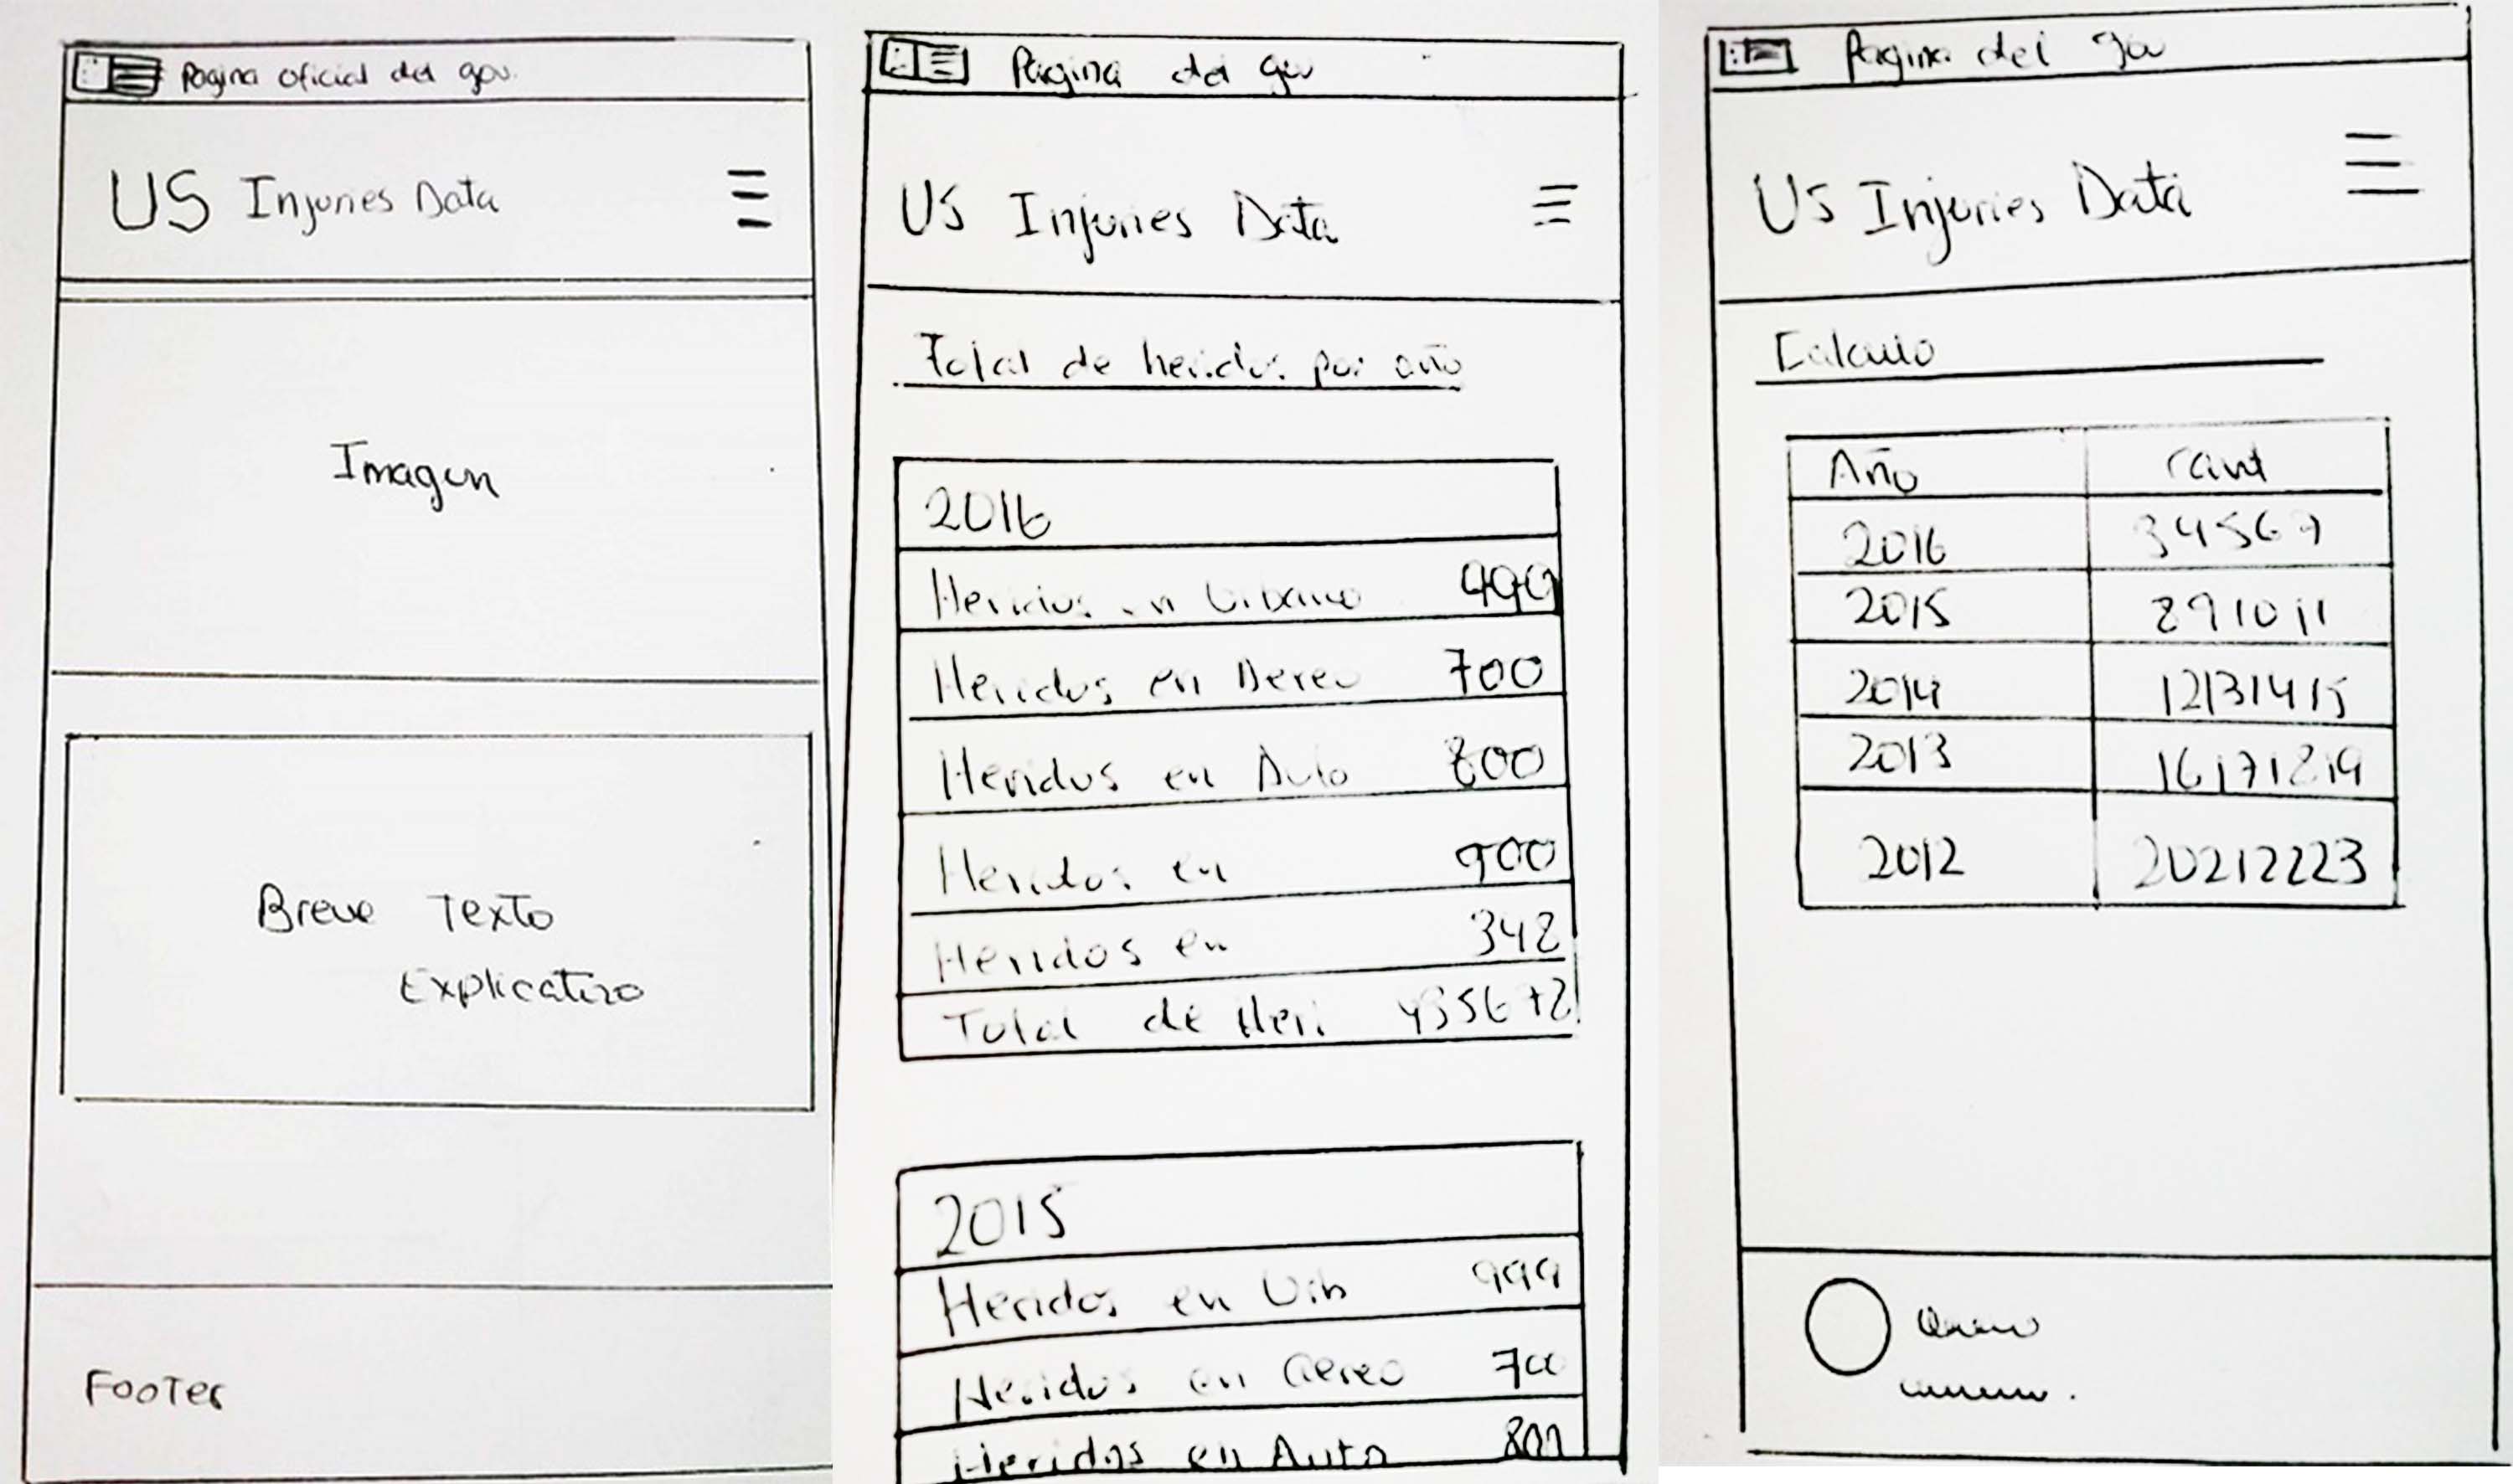 Pagina oficial del gov.
US Injuries Data
Imagen
Breve Texto
Explicativo
Footer
Pagina del gov
US Injuries Data
Total de heridos por año
2016
Heridos en Urbano 990
Heridos en Aereo 700
Heridos en Auto 800
Heridos en 900
Heridos en 348
Total de Heri
2015
Heridos en Urb 999
Heridos en aereo 700
Heridos en Auto 800
Pagina del gov
US Injuries Data
Calculo
Año Cant
2016 34567
2015 891011
2014 12131415
2013 16171819
2012 20212223